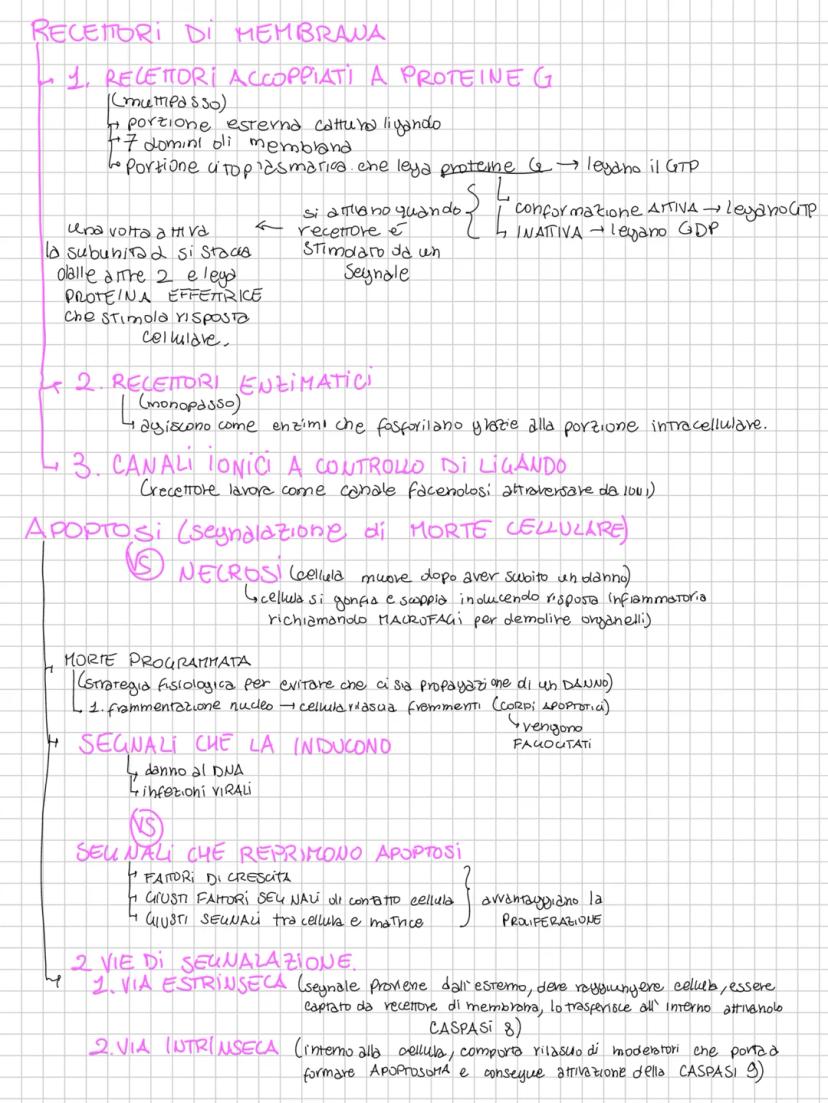 RECETTORI DI MEMBRANA
1. RECETTORI ACCOPPIATI A PROTEINE G
(multipasso)
porzione esterna cattura ligando
7 domini di membrana
porzione citoplasmatica che lega proteine G → legano il GTP
conformazione ATTIVA → legano GTP
INATTIVA → legano GDP
si attivano quando
recettore è
stimolato da un
segnale
una volta attiva
la subunità α si stacca
dalle altre 2 e lega
PROTEINA EFFETTRICE
che stimola risposta
cellulare.
2. RECETTORI ENZIMATICI
(monopasso)
agiscono come enzimi che fosforilano grazie alla porzione intracellulare.
3. CANALI IONICI A CONTROLLO DI LIGANDO
(recettore lavora come canale facendosi attraversare da ioni)
APOPTOSI (segnalazione di MORTE CELLULARE)
VS NECROSI (cellula muore dopo aver subito un danno)
cellula si gonfia e scoppia inducendo risposta infiammatoria
richiamando MACROFAGI per demolire organelli)
MORTE PROGRAMMATA
(strategia fisiologica per evitare che ci sia propagazione di un DANNO)
1. frammentazione nucleo → cellula rilascia frammenti (CORPI APOPTOTICI)
vengono
FAGOCITATI
SEGNALI CHE LA INDUCONO
danno al DNA
infezioni VIRALI
VS
SEGNALI CHE REPRIMONO APOPTOSI
FATTORI DI CRESCITA
GIUSTI FATTORI SEGNALI di contatto cellula
GIUSTI SEGNALI tra cellula e matrice
avvantaggiano la
PROLIFERAZIONE
2 VIE DI SEGNALAZIONE.
1. VIA ESTRINSECA (segnale proviene dall'esterno, deve raggiungere cellula, essere
captato da recettore di membrana, lo trasferisce all'interno attivando
CASPASI 8)
2. VIA INTRINSECA (interno alla cellula, comporta rilascio di moderatori che porta a
formare APOPTOSOMA e consegue attivazione della CASPASI 9)